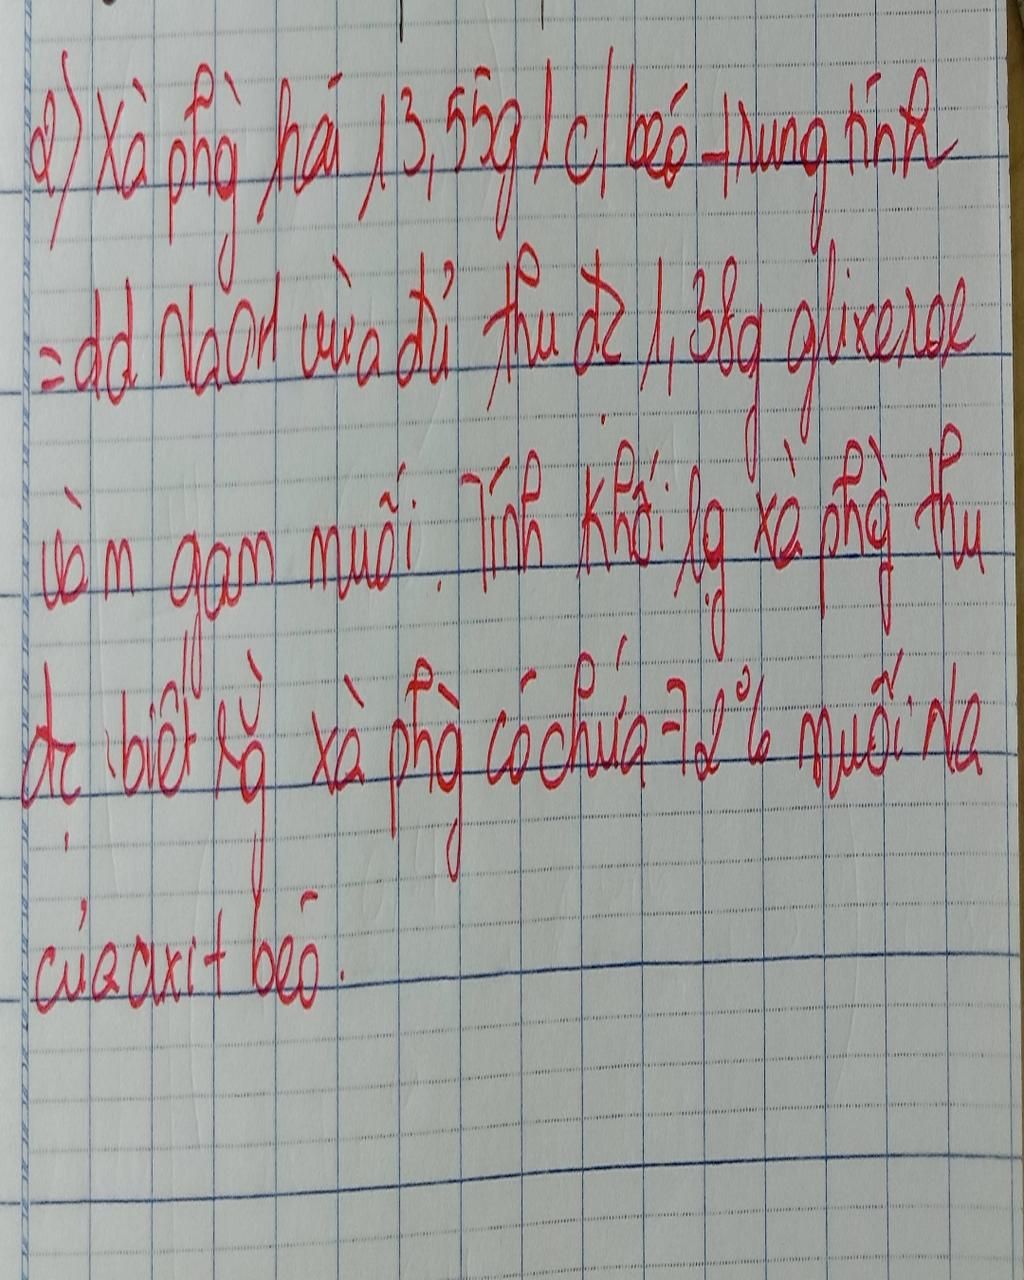 2) Xà phg hoá 13,55g 1 c/béo trung tính
= dd NaOH vừa đủ thu đc 1,38g glixerol
và m gam muối. Tính khối lg xà phg thu
đc, biết rg xà phg có chứa 72% muối Na
của axit béo.